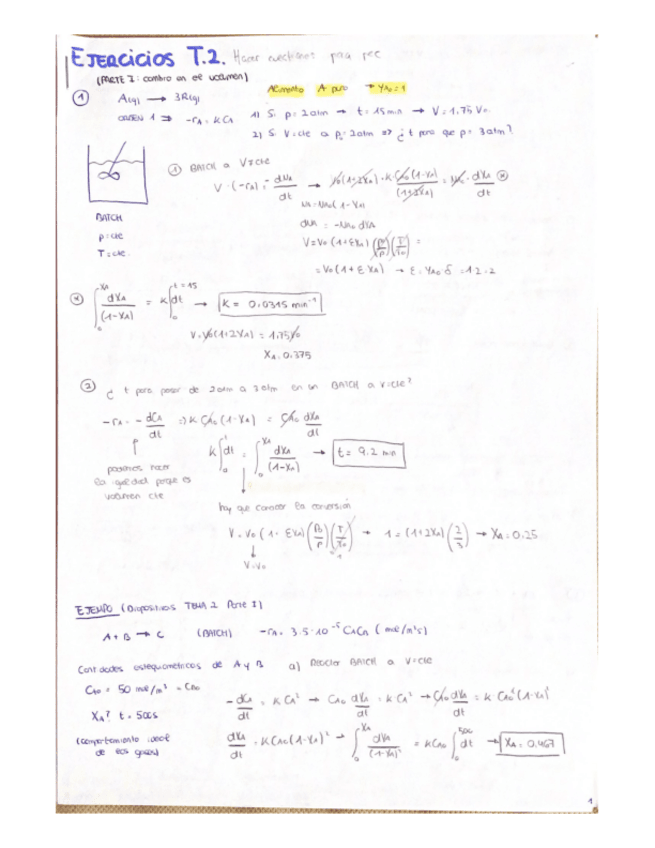 EJERCICIOS T.2. Hacer cuestiones para pec
(PARTE I: cambio en el volumen)
Alimento A puro → yAo=1
① A(g) → 3R(g)
ORDEN 1 ⇒ -rA = k CA
1) Si p = 2 atm → t = 15 min → V = 1.75 Vo
2) Si V = cte a po = 2 atm ⇒ ¿ t para que p = 3 atm?
① BATCH a V≠cte
V · (-rA) = -dNA/dt → Vo(1+2XA) · k · CAo(1-XA)/(1+2XA) = NAo · dXA/dt
NA = NAo(1-XA)
dNA = -NAo dXA
BATCH
p = cte
T = cte
V = Vo (1+εXA) (po/p)(T/To) =
= Vo (1+ε XA) → ε = yAo δ = 1·2 = 2
∫₀^XA dXA/(1-XA) = k ∫₀^t=15 dt → k = 0.0315 min⁻¹
V = Vo(1+2XA) = 1.75Vo
XA = 0.375
② ¿ t para pasar de 2 atm a 3 atm en un BATCH a V=cte?
-rA = -dCA/dt ⇒ k CAo (1-XA) = CAo dXA/dt
podemos hacer
la igualdad porque es
volumen cte
k ∫₀^t dt = ∫₀^XA dXA/(1-XA) → t = 9.2 min
hay que conocer la conversión
V = Vo (1+ εXA) (po/p)(T/To) → 1 = (1+2XA)(2/3) → XA = 0.25
V=Vo
EJEMPLO (Diapositivas TEMA 2 Parte I)
A + B → C (BATCH) -rA = 3.5·10⁻⁵ CACB (mol/m³s)
Cantidades estequiométricas de A y B a) Reactor BATCH a V=cte
CAo = 50 mol/m³ = CBo
XA? t = 500s
(comportamiento ideal
de los gases)
-dCA/dt = k CA² → CAo dXA/dt = k CA² → CAo dXA/dt = k CAo²(1-XA)²
dXA/dt = k CAo (1-XA)² → ∫₀^XA dXA/(1-XA)² = k CAo ∫₀^500 dt → XA = 0.467
1